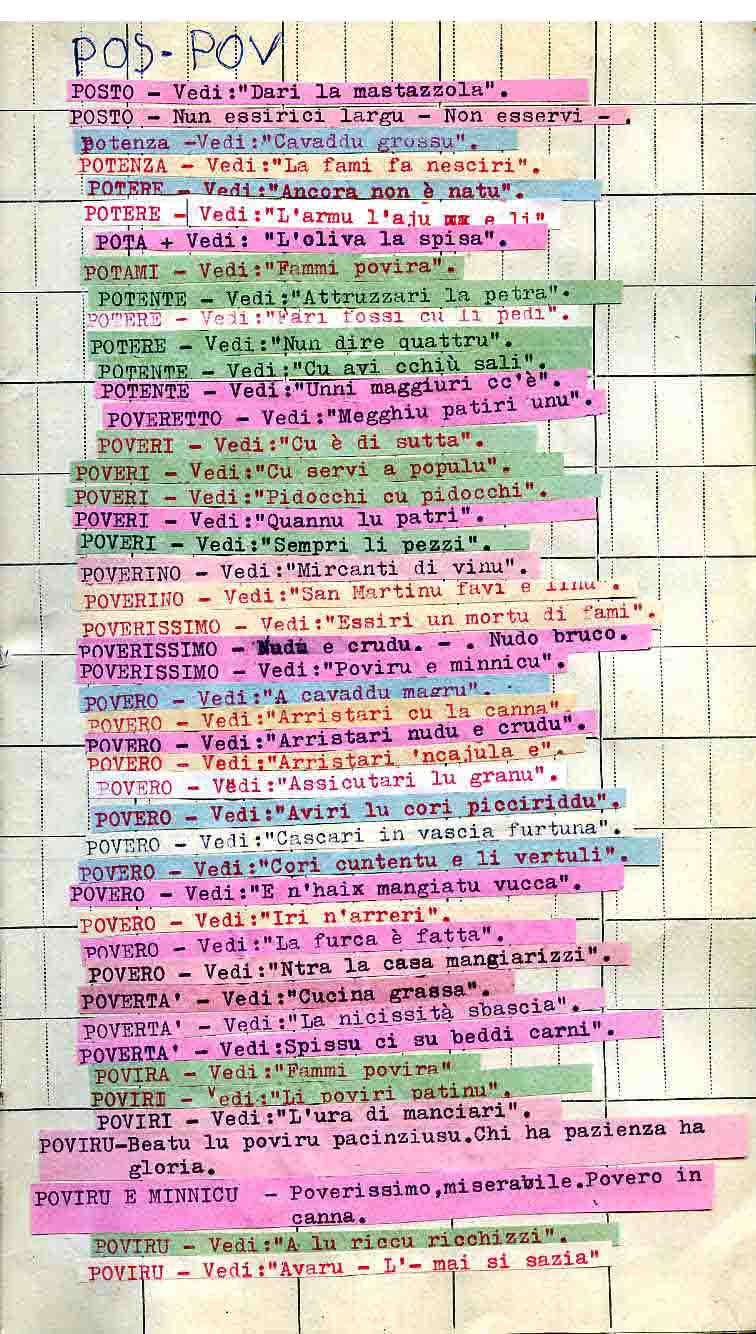 POS-POV
POSTO - Vedi:"Dari la mastazzola".
POSTO - Nun essirici largu - Non esservi - .
potenza -Vedi:"Cavaddu grossu".
POTENZA - Vedi:"La fami fa nesciri".
POTERE - Vedi:"Ancora non è natu".
POTERE - Vedi:"L'armu l'aju xx e li"
POTA + Vedi: "L'oliva la spisa".
POTAMI - Vedi:"Fammi povira".
POTENTE - Vedi:"Attruzzari la petra".
POTERE - Vedi:"Fari fossi cu li pedi".
POTERE - Vedi:"Nun dire quattru".
POTENTE - Vedi:"Cu avi cchiù sali".
POTENTE - Vedi:"Unni maggiuri cc'è".
POVERETTO - Vedi:"Megghiu patiri unu".
POVERI - Vedi:"Cu è di sutta".
POVERI - Vedi:"Cu servi a populu".
POVERI - Vedi:"Pidocchi cu pidocchi".
POVERI - Vedi:"Quannu lu patri".
POVERI - Vedi:"Sempri li pezzi".
POVERINO - Vedi:"Mircanti di vinu".
POVERINO - Vedi:"San Martinu favi e linu".
POVERISSIMO - Vedi:"Essiri un mortu di fami".
POVERISSIMO - Nudu e crudu. - . Nudo bruco.
POVERISSIMO - Vedi:"Poviru e minnicu".
POVERO - Vedi:"A cavaddu magru".
POVERO - Vedi:"Arristari cu la canna".
POVERO - Vedi:"Arristari nudu e crudu".
POVERO - Vedi:"Arristari 'ncajula e".
POVERO - Vedi:"Assicutari lu granu".
POVERO - Vedi:"Aviri lu cori picciriddu".
POVERO - Vedi:"Cascari in vascia furtuna".
POVERO - Vedi:"Cori cuntentu e li vertuli".
POVERO - Vedi:"E n'haix mangiatu vucca".
POVERO - Vedi:"Iri n'arreri".
POVERO - Vedi:"La furca è fatta".
POVERO - Vedi:"Ntra la casa mangiarizzi".
POVERTA' - Vedi:"Cucina grassa".
POVERTA' - Vedi:"La nicissità sbascia".
POVERTA' - Vedi:Spissu ci su beddi carni".
POVIRA - Vedi:"Fammi povira"
POVIRI - Vedi:"Li poviri patinu".
POVIRI - Vedi:"L'ura di manciari".
POVIRU-Beatu lu poviru pacinziusu.Chi ha pazienza ha
gloria.
POVIRU E MINNICU - Poverissimo,miserabile.Povero in
canna.
POVIRU - Vedi:"A lu riccu ricchizzi".
POVIRU - Vedi:"Avaru - L'- mai si sazia"